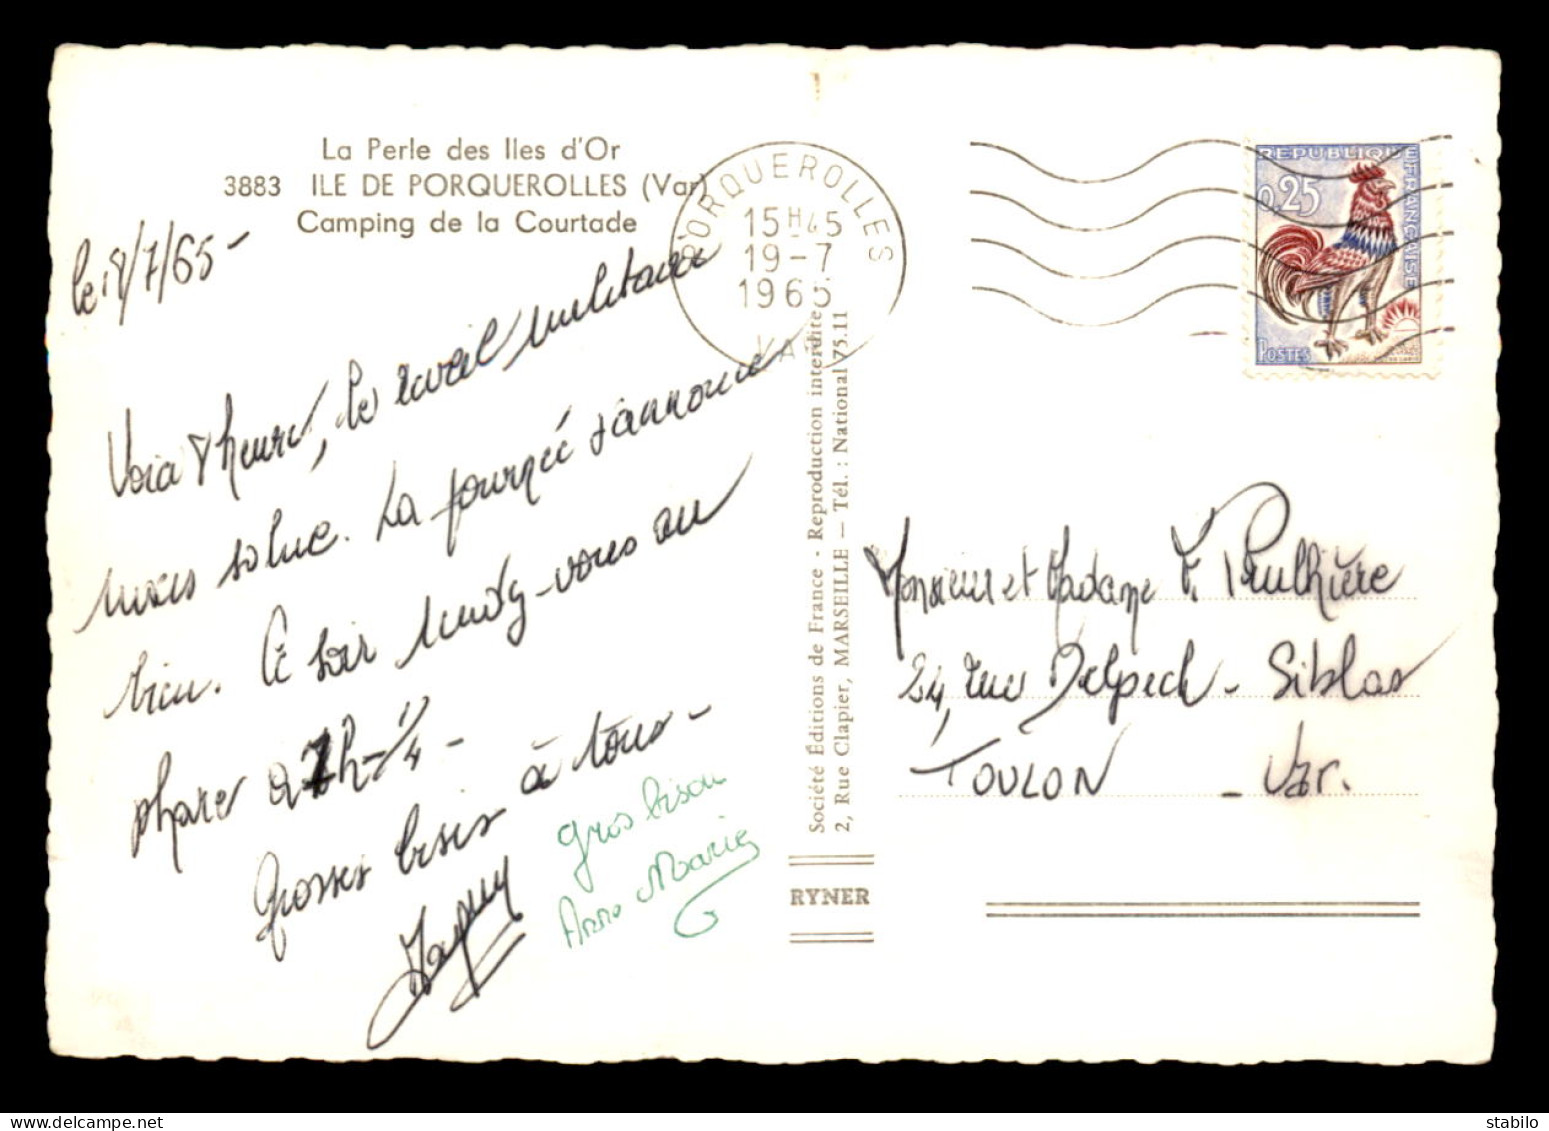 La Perle des Iles d'Or
3883 ILE DE PORQUEROLLES (Var)
Camping de la Courtade
le 18/7/65 -
Voici 8 heures, le soleil
nous salue. La journée s'annonce
bien. Ce soir rendez-vous au
phare à 7h-1/4 -
Grosses bises à tous -
Jacquy
Gros bisou
Anne Marie
PORQUEROLLES
15H45
19-7
1965
VAR
Société Éditions de France - Reproduction interdite
2, Rue Clapier, MARSEILLE — Tél. : National 75.11
RYNER
REPUBLIQUE FRANÇAISE
0,25
POSTES
Monsieur et Madame Paulhière
24, rue Delpech - Siblas
TOULON - Var.
stabilo